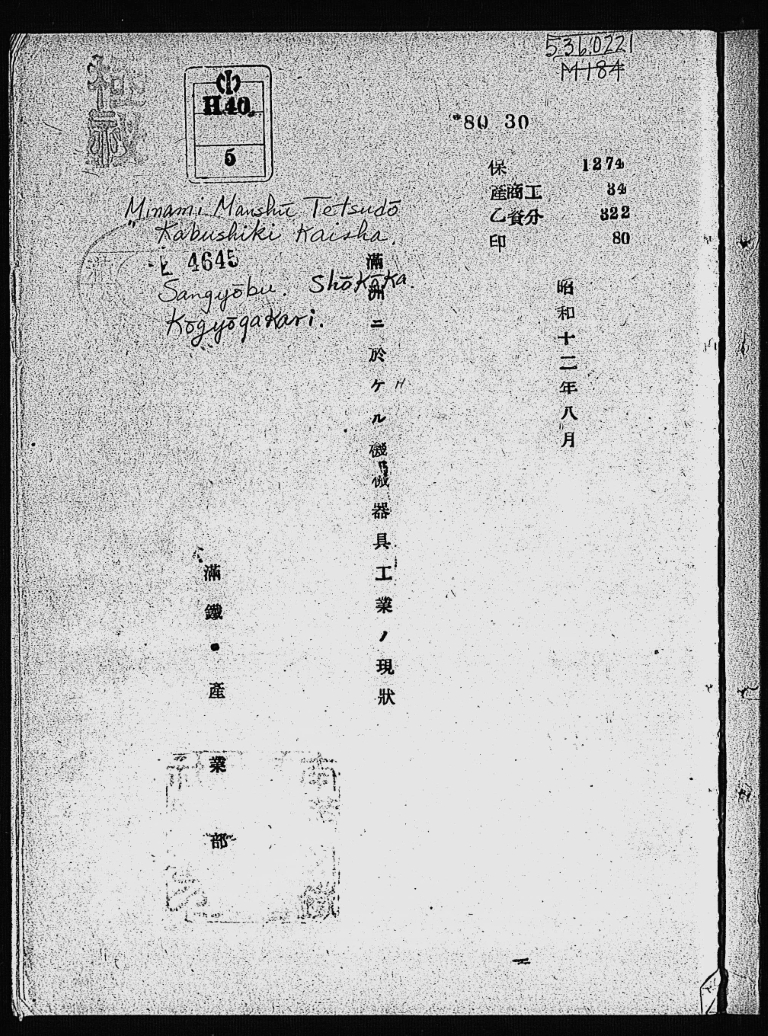 536.0221
M184
極秘
H.40.
5
*80 30
保 1274
産商工 34
乙資分 322
印 80
Minami Manshū Tetsudō
Kabushiki Kaisha.
4645
Sangyōbu. Shōkōka.
Kōgyōgakari.
昭和十二年八月
滿洲ニ於ケル機械器具工業ノ現狀
滿鐵・產業部